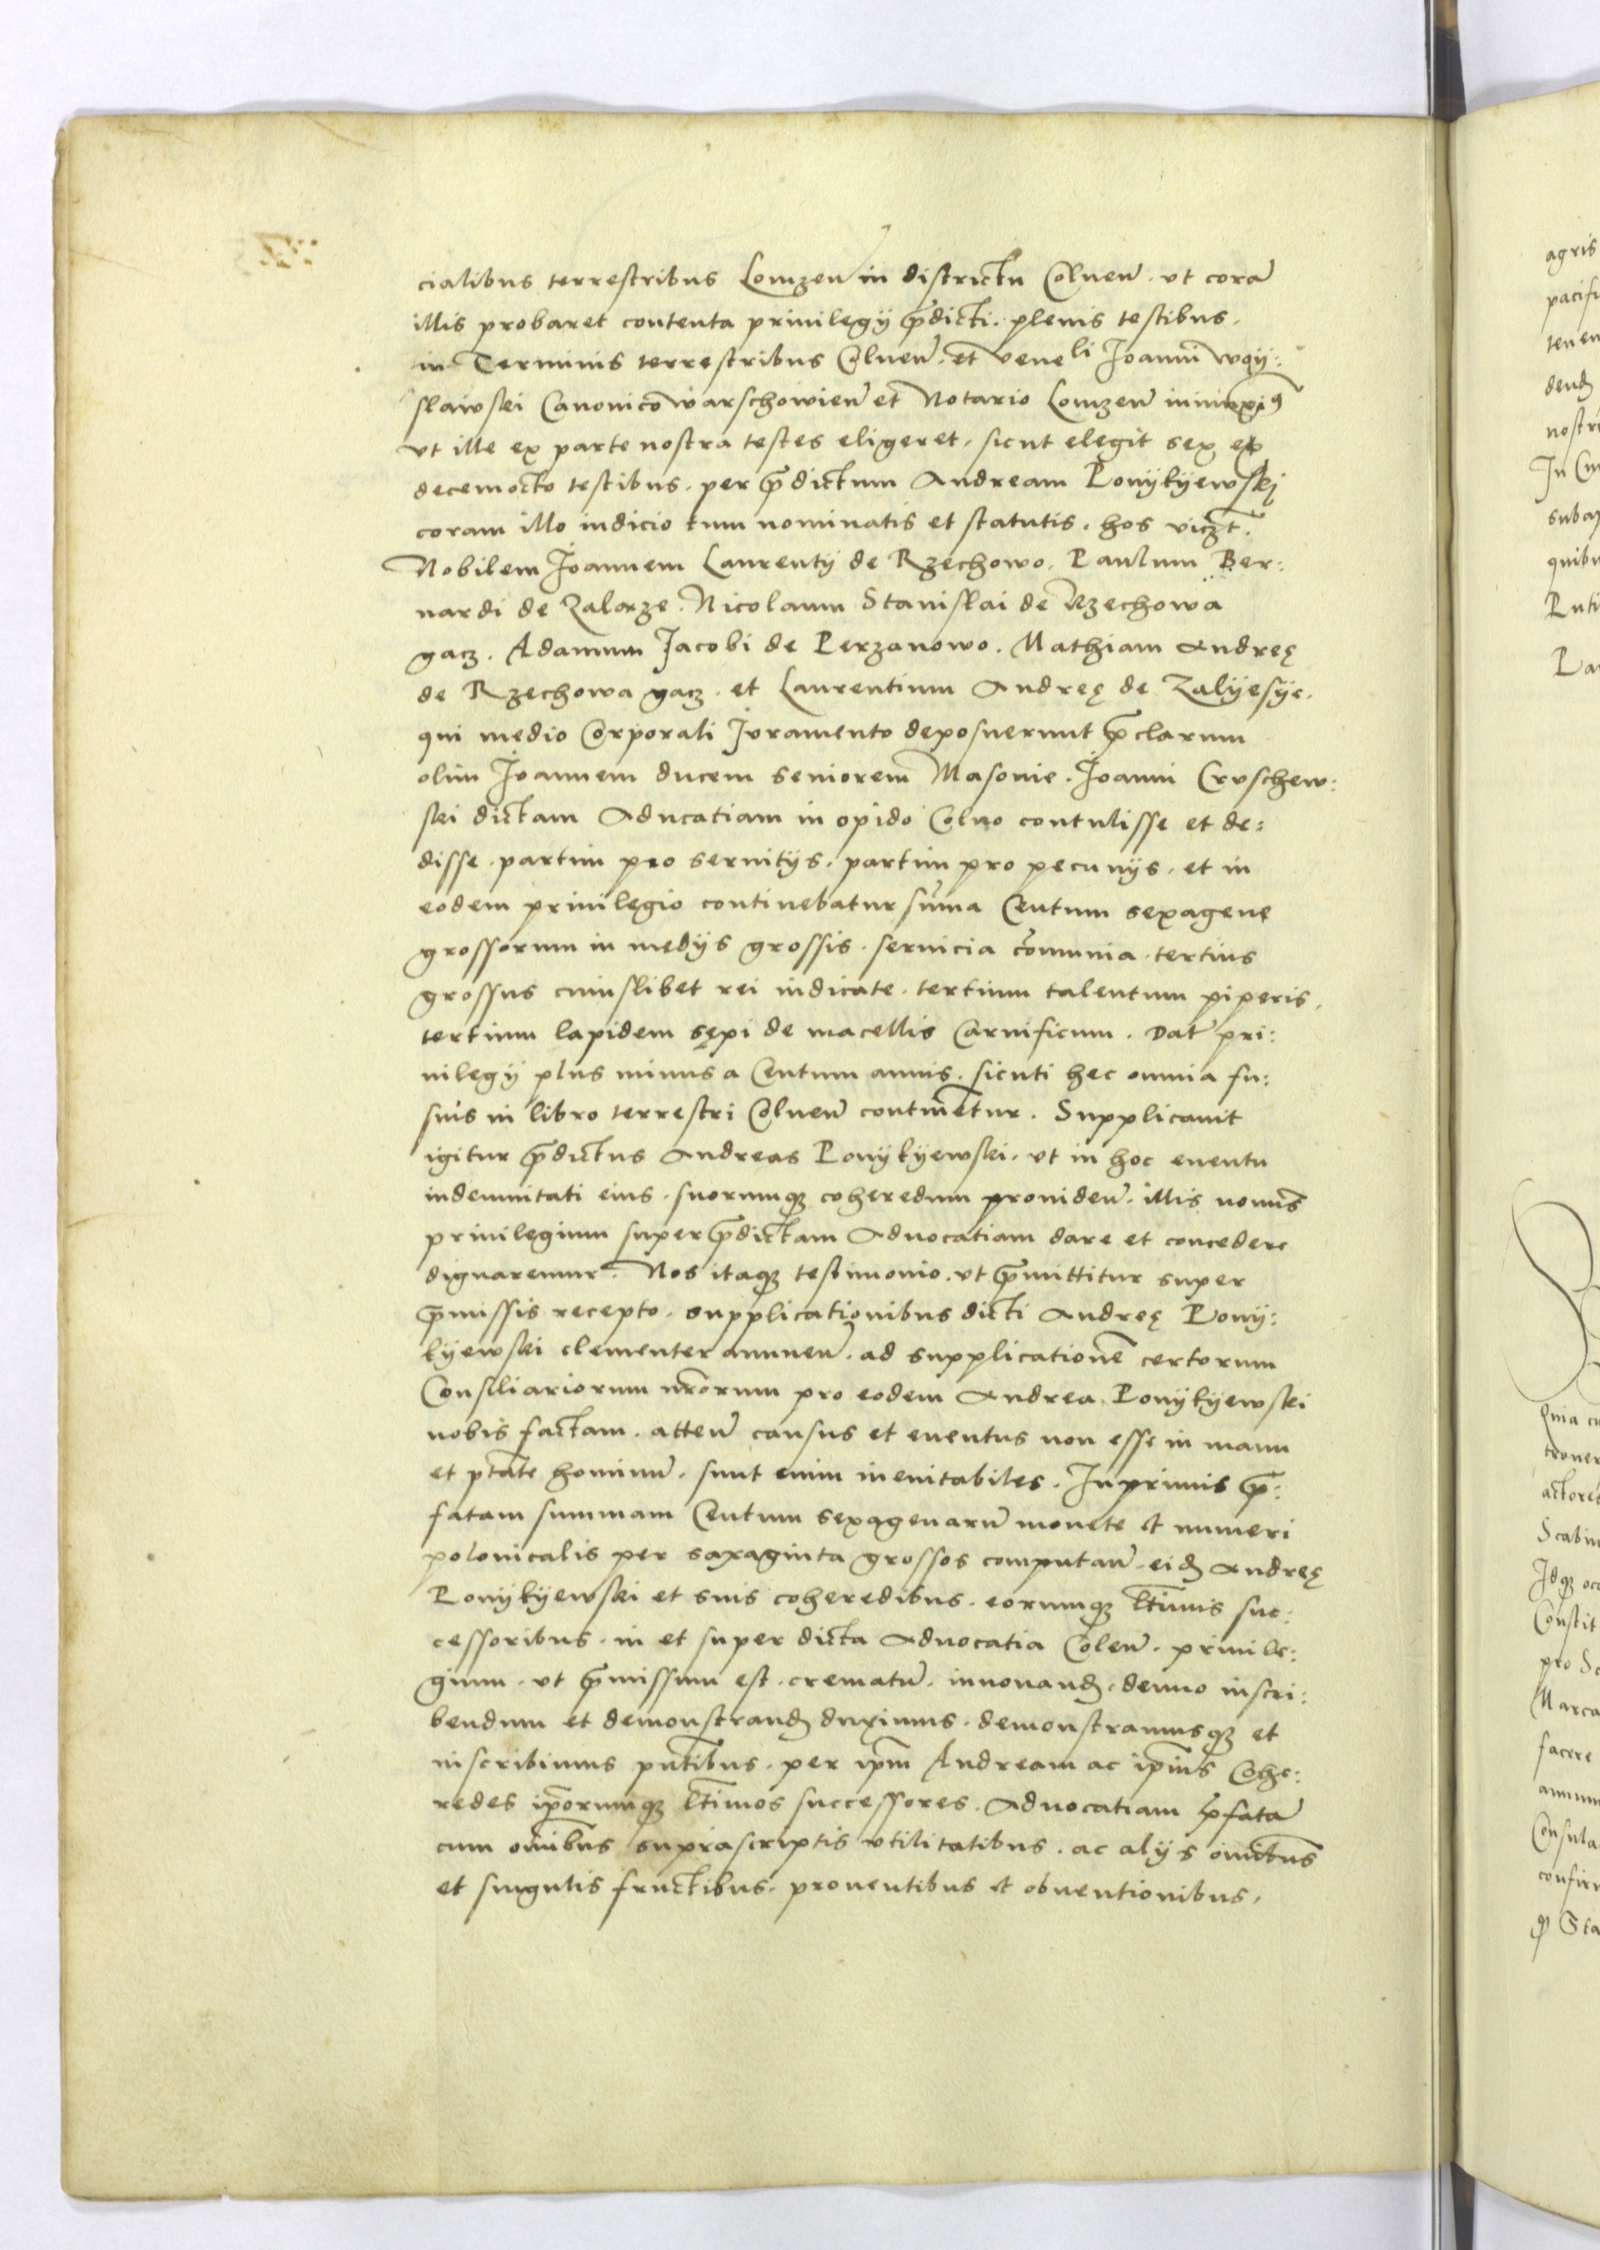 cialibus terrestribus Lomzen̄ in districtu Colnen̄. ut corā
illis probaret contenta priuilegij p̄dicti. plenis testibus.
in Terminis terrestribus Colnen̄. et vene^li Joanni wQij:
slawski Canonico warschowien̄ et Notario Lomzen̄ iniunxim9
ut ille ex parte nostra testes eligeret. sicut elegit sex ex
decemocto testibus. per p̄dictum Andream Ponijkijewskj
coram illo iudicio tum nominatis et statutis. hos viczt.
Nobilem Joannem Laurentij de Rzechowo. Paulum Ber:
nardi de Zalarze. Nicolaum Stanislai de Rzechowa
gacz. Adamum Jacobi de Perzanowo. Mathiam Andreę
de Rzechowa gacz. et Laurentium Andreę de Zalijesije.
qui medio Corporali Juramento deposuerunt p̄clarum
olim Joannem ducem seniorem Masouie. Joanni Cruschew:
ski dictam Aducatiam in opido Colno contulisse et de:
disse. partim pro seruitijs. partim pro pecunijs. et in
eodem priuilegio continebatur sum̄a Centum sexagene
grossorum in medijs grossis. seruicia com̄unia. tertius
grossus cuiuslibet rei iudicate. tertium talentum piperis.
tertium lapidem sępi de macellis Carnificum. Dat̄ pri:
uilegij plus minus a Centum annis. sicuti hec omnia fu:
sius in libro terrestri Colnen̄ continetur. Supplicauit
igitur p̄dictus Andreas Ponijkijewski. ut in hoc euentu
indemnitati eius. suorumq3 coheredum prouiden̄. illis nouum
priuilegium super p̄dictam Aduocatiam dare et concedere
dignaremur. Nos itaq3 testimonio. ut p̄mittitur super
p̄missis recepto. supplicationibus dicti Andreę Ponij:
kijewski clementer annuen̄. ad supplicationē certorum
Consiliariorum nr̄orum pro eodem Andrea Ponijkijewski
nobis factam. atten̄ causus et euentus non esse in manu
et ptāte hominū. sunt enim ineuitabiles. Inprimis p̄:
fatam summam Centum sexagenarū monete et numeri
polonicalis per saxaginta grossos computan̄. eid Andreę
Ponijkijewski et suis coheredibus. eorumq3 ltīmis suc:
cessoribus. in et super dicta Aduocatia Colen̄. priuile:
gium. ut p̄missum est. crematū. innouand. denuo inscri:
bendum et demonstrand duximus. demonstramusq3 et
inscribimus pn̄tibus. per ip̄m Andream ac ip̄ius Cohe:
redes ip̄orumq3 ltīmos successores. Aduocatiam p̄fatā
cum om̄ibus suprascriptis utilitatibus. ac alijs om̄ibus
et singulis fructibus. prouentibus et obuentionibus.